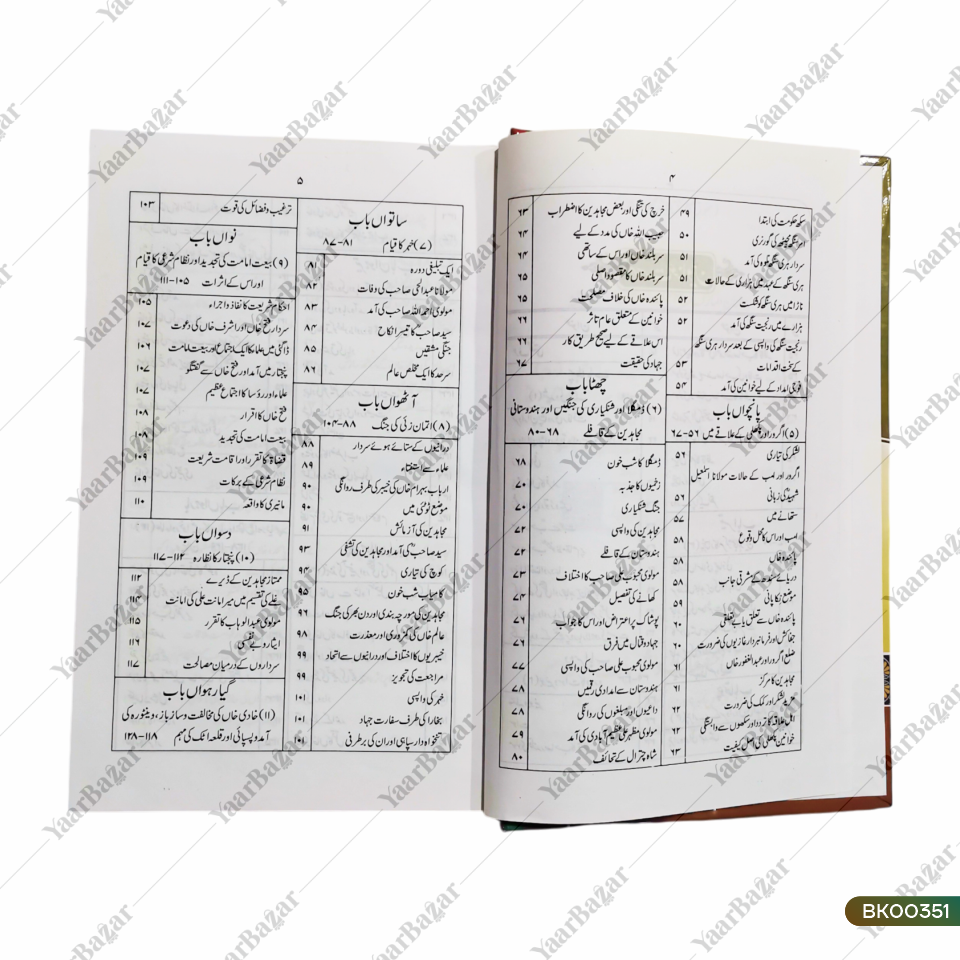 ۴
سکھ حکومت کی ابتدا ۴۹
امر سنگھ مجیٹھہ کی گورنری ۵۰
سردار ہری سنگھ نلوہ کی آمد ۵۱
ہری سنگھ کے عہد میں ہزاری کے حالات ۵۱
ناڑا میں ہری سنگھ کو شکست ۵۲
ہزارے میں رنجیت سنگھ کی آمد ۵۲
رنجیت سنگھ کی واپسی کے بعد سردار ہری سنگھ
کے سخت اقدامات ۵۳
فوجی امداد کے لیے خوانین کی آمد ۵۴
پانچواں باب
(۵) اگرور اور پکھلی کے علاقے میں ۵۶-۶۷
لشکر کی تیاری ۵۶
اگرور اور امب کے حالات مولانا اسمٰعیل
شہید کی زبانی ۵۶
ستھانے میں ۵۷
امب اور اس کا محل وقوع ۵۸
پائندہ خاں ۵۸
دریائے سندھ کے مشرقی جانب ۵۸
موضع نکا پانی ۵۹
پائندہ خاں سے تعلق یا بے تعلقی ۶۰
جفاکش اور فرمانبردار غازیوں کی ضرورت ۶۰
ضلع اگرور اور عبدالغفور خاں ۶۱
مجاہدین کا مرکز ۶۱
مزید لشکر اور کمک کی ضرورت ۶۲
اہل علاقہ کا تردد اور سکھوں سے وابستگی ۶۲
خوانین پکھلی کی اصل کیفیت ۶۳
خرچ کی تنگی اور بعض مجاہدین کا اضطراب ۶۳
حبیب اللہ خاں کی مدد کے لیے ۶۴
سربلند خاں اور اس کے ساتھی ۶۴
سربلند خاں کا مقصود اصلی ۶۵
پائندہ خاں کی خلاف مصلحت ۶۵
خوانین کے متعلق عام تاثر ۶۶
اس علاقے کے لیے صحیح طریق کار ۶۶
جہاد کی حقیقت ۶۷
چھٹا باب
(۶) ڈمگلا اور شنکیاری کی جنگیں اور ہندوستانی
مجاہدین کے قافلے ۶۸-۸۰
ڈمگلا کا شب خون ۶۸
زخمیوں کا جذبہ ۷۰
جنگ شنکیاری ۷۰
مجاہدین کی واپسی ۷۲
ہندوستان کے قافلے ۷۲
مولوی محبوب علی صاحب کا اختلاف ۷۳
کھانے کی تفصیل ۷۴
پوشاک پر اعتراض اور اس کا جواب ۷۶
جہاد و قتال میں فرق ۷۶
مولوی محبوب علی صاحب کی واپسی ۷۷
ہندوستان سے امدادی رقمیں ۷۸
داعیوں اور مبلغوں کی روانگی ۷۸
مولوی مظہر علی عظیم آبادی کی آمد ۷۹
شاہ چترال کے تحائف ۸۰
۵
ساتواں باب
(۷) خہر کا قیام ۸۱-۸۷
ایک تبلیغی دورہ ۸۱
مولانا عبدالحی صاحب کی وفات ۸۲
مولوی احمد اللہ صاحب کی آمد ۸۳
سید صاحب کا تیسرا نکاح ۸۴
جنگی مشقیں ۸۵
سرحد کا ایک مخلص عالم ۸۶
آٹھواں باب
(۸) اتمان زئی کی جنگ ۸۸-۱۰۴
درانیوں کے ستائے ہوئے سردار ۸۸
علماء سے استفتاء ۸۹
ارباب بہرام خاں کی خیبر کی طرف روانگی ۹۰
موضع ٹوٹئی میں ۹۰
مجاہدین کی آزمائش ۹۱
سید صاحبؒ کی آمد اور مجاہدین کی تشفی ۹۳
کوچ کی تیاری ۹۴
کامیاب شب خون ۹۵
مجاہدین کی مورچہ بندی اور دن بھر کی جنگ ۹۶
عالم خاں کی کمزوری اور معذرت ۹۸
خیبریوں کا اختلاف اور درانیوں سے اتحاد ۹۹
مراجعت کی تجویز ۹۹
خہر کی واپسی ۱۰۱
بخارا کی طرف سفارت جہاد ۱۰۱
تنخواہ دار سپاہی اور ان کی برطرفی ۱۰۱
ترغیب و فضائل کی قوت ۱۰۳
نواں باب
(۹) بیعت امامت کی تجدید اور نظام شرعی کا قیام
اور اس کے اثرات ۱۰۵-۱۱۱
احکام شریعت کا نفاذ و اجراء ۱۰۵
سردار فتح خاں اور اشرف خاں کی دعوت ۱۰۷
ڈاگئی میں علماء کا ایک اجتماع اور بیعت امامت ۱۰۶
پنجتار میں آمد اور فتح خاں سے گفتگو ۱۰۷
علماء اور رؤسا کا اجتماع عظیم ۱۰۷
فتح خاں کا اقرار ۱۰۸
بیعت امامت کی تجدید ۱۰۸
قضاۃ کا تقرر اور اقامت شریعت ۱۰۹
نظام شرعی کے برکات ۱۰۹
مانیری کا واقعہ ۱۱۰
دسواں باب
(۱۰) پنجتار کا نظارہ ۱۱۲-۱۱۷
ممتاز مجاہدین کے ڈیرے ۱۱۲
غلے کی تقسیم میں میر امانت علی کی امانت ۱۱۴
مولوی عبدالوہاب کا تقرر ۱۱۵
ایثار و بے نفسی ۱۱۶
سرداروں کے درمیان مصالحت ۱۱۷
گیارہواں باب
(۱۱) خادی خاں کی مخالفت و ساز باز، وینٹورہ کی
آمد و پسپائی اور قلعہ اٹک کی مہم ۱۱۸-۱۲۸
YaarBazar
BK00351